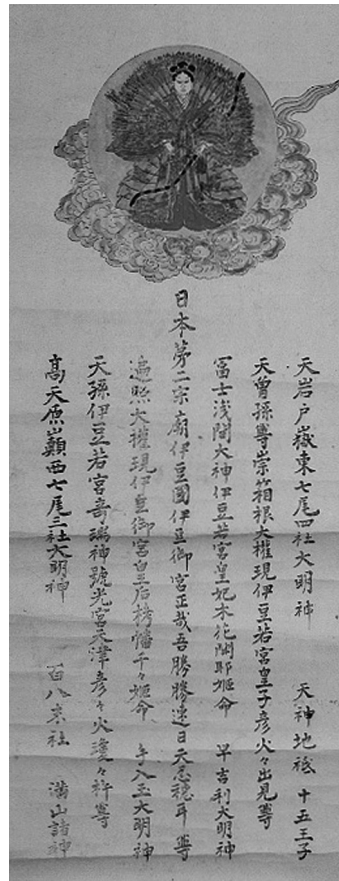 天岩戸嶽東七尾四社大明神 天神地祇 十五王子
天曽孫尊崇箱根大權現伊豆若宮皇子彦火々出見尊
冨士浅間大神伊豆若宮皇妃木花開耶姫命 早吉利大明神
日本苐二宗廟伊豆國伊豆御宮正哉吾勝勝速日天忍穂耳尊
遍照大權現伊皇御宮皇后栲幡千々姫命 大明神
天孫伊豆若宮奇瑞神號光宮天津彦々火瓊々杵尊
髙天原山巓西七尾三社大明神 百八末社 満山諸神